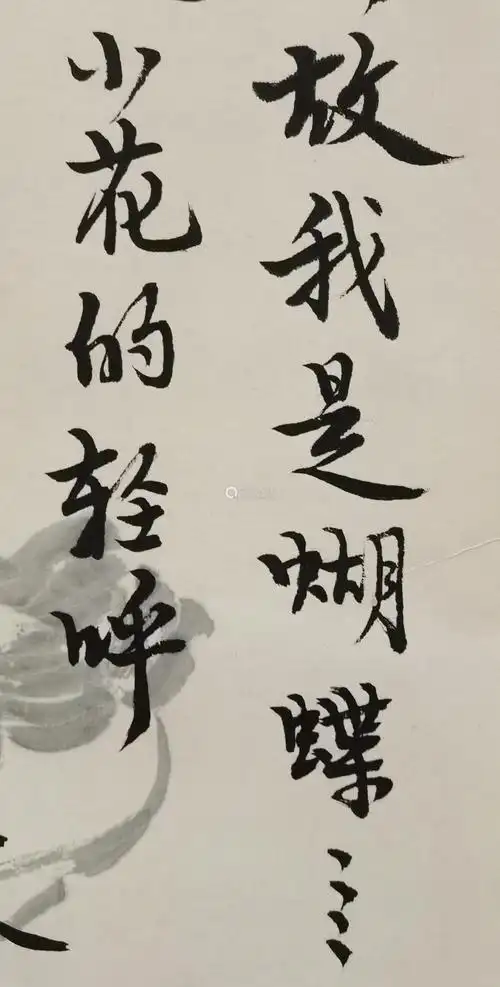 故我是蝴蝶
小花的轻呼